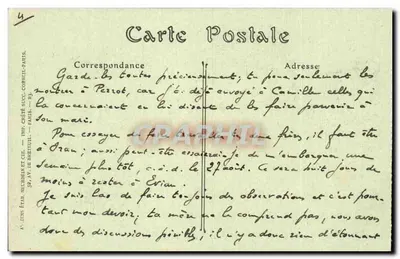 4
Carte Postale
Correspondance
Adresse
Garde-les toutes précieusement; tu peux seulement les
montrer à Perrot, car j'ai déjà envoyé à Camille celles qui
la concernaient en lui disant de les faire parvenir à
son mari.
Pour essayer de faire une frise, il faut être
à ; aussi peut-être essaierai-je de m'embarquer une
semaine plus tôt, c.à.d. le 27 août. Ce sera huit jours de
moins à rester à Evian.
Je suis las de faire toujours des observations et c'est pour-
tant mon devoir; ta mère ne le comprend pas, nous avons
donc des discussions pénibles; il n'y a donc rien d'étonnant